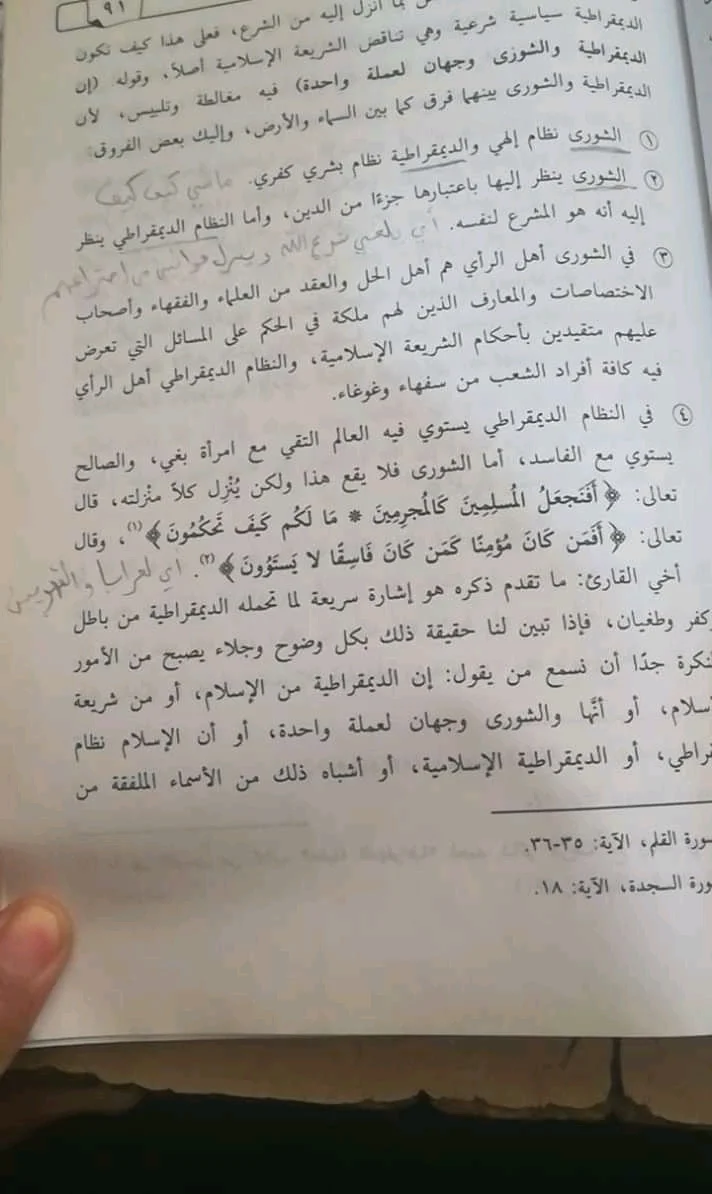 ٩١
بما أنزل إليه من الشرع، فعلى هذا كيف تكون
الديمقراطية سياسية شرعية وهي تناقض الشريعة الإسلامية أصلاً، وقوله (إن
الديمقراطية والشورى وجهان لعملة واحدة) فيه مغالطة وتلبيس، لأن
الديمقراطية والشورى بينهما فرق كما بين السماء والأرض، وإليك بعض الفروق:
١ الشورى نظام إلهي والديمقراطية نظام بشري كفري.
كيف كيف
٢ الشورى ينظر إليها باعتبارها جزءًا من الدين، وأما النظام الديمقراطي ينظر
إليه أنه هو المشرع لنفسه.
أي يلغي شرع الله و
٣ في الشورى أهل الرأي هم أهل الحل والعقد من العلماء والفقهاء وأصحاب
الاختصاصات والمعارف الذين لهم ملكة في الحكم على المسائل التي تعرض
عليهم متقيدين بأحكام الشريعة الإسلامية، والنظام الديمقراطي أهل الرأي
فيه كافة أفراد الشعب من سفهاء وغوغاء.
٤ في النظام الديمقراطي يستوي فيه العالم التقي مع امرأة بغي، والصالح
يستوي مع الفاسد، أما الشورى فلا يقع هذا ولكن يُنْزِل كلاً منْزلته، قال
تعالى: ﴿أَفَنَجعَلُ المُسلِمِينَ كَالمُجرِمِينَ * مَا لَكُم كَيفَ تَحكُمُونَ﴾(١)، وقال
تعالى: ﴿أَفَمَن كَانَ مُؤمِنًا كَمَن كَانَ فَاسِقًا لا يَستَوُونَ﴾(٢).
أي
أخي القارئ: ما تقدم ذكره هو إشارة سريعة لما تحمله الديمقراطية من باطل
وكفر وطغيان، فإذا تبين لنا حقيقة ذلك بكل وضوح وجلاء يصبح من الأمور
لنكرة جدًا أن نسمع من يقول: إن الديمقراطية من الإسلام، أو من شريعة
إسلام، أو أنَّها والشورى وجهان لعملة واحدة، أو أن الإسلام نظام
قراطي، أو الديمقراطية الإسلامية، أو أشباه ذلك من الأسماء الملفقة من
سورة القلم، الآية: ٣٥-٣٦.
ورة السجدة، الآية: ١٨.